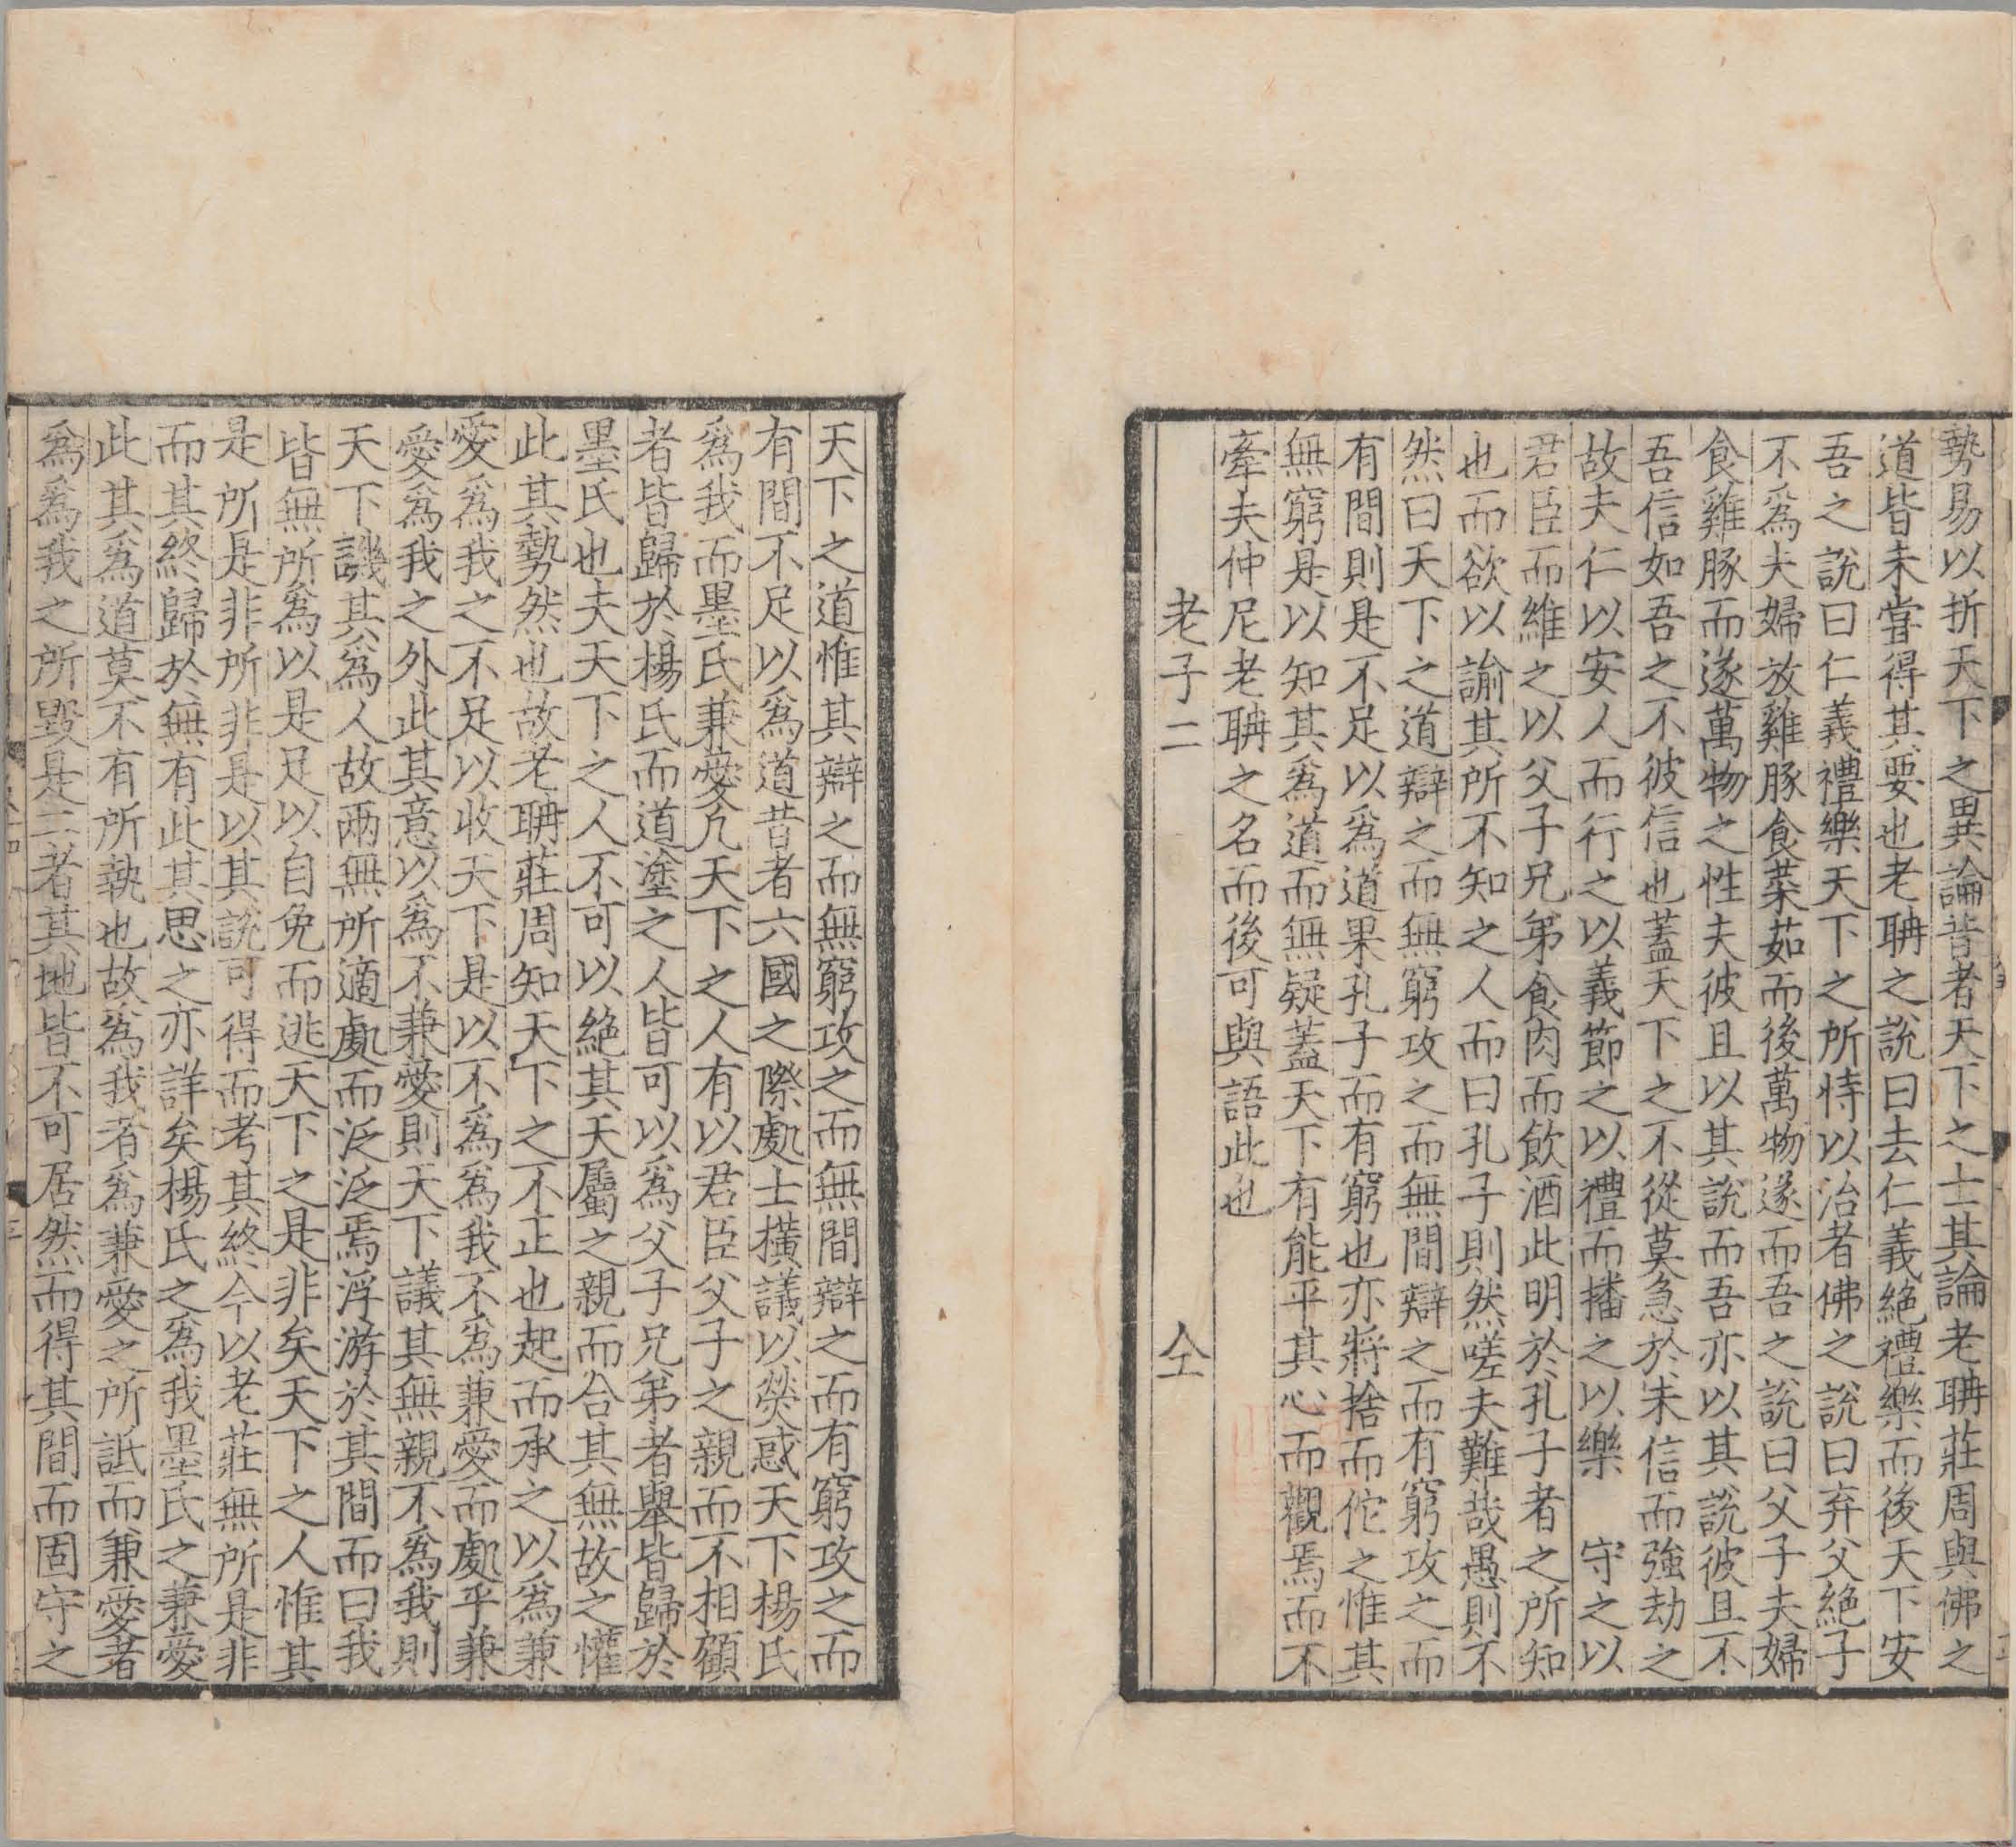 勢易以折天下之異論昔者天下之士其論老聃莊周與佛之
道皆未甞得其要也老聃之說曰去仁義絶禮樂而後天下安
吾之說曰仁義禮樂天下之所恃以治者佛之說曰弃父絶子
不爲夫婦放雞豚食菜茹而後萬物遂而吾之說曰父子夫婦
食雞豚而遂萬物之性夫彼且以其說而吾亦以其說彼且不
吾信如吾之不彼信也蓋天下之不從莫急於未信而強劫之
故夫仁以安人而行之以義節之以禮而播之以樂　守之以
君臣而維之以父子兄弟食肉而飲酒此明於孔子者之所知
也而欲以諭其所不知之人而曰孔子則然嗟夫難哉愚則不
然曰天下之道辯之而無窮攻之而無間辯之而有窮攻之而
有間則是不足以爲道果孔子而有窮也亦將捨而佗之惟其
無窮是以知其爲道而無疑蓋天下有能平其心而觀焉而不
牽夫仲尼老聃之名而後可與語此也
老子二　仝
天下之道惟其辯之而無窮攻之而無間辯之而有窮攻之而
有間不足以爲道昔者六國之際處士橫議以熒惑天下楊氏
爲我而墨氏兼愛凢天下之人有以君臣父子之親而不相顧
者皆歸於楊氏而道塗之人皆可以爲父子兄弟者舉皆歸於
墨氏也夫天下之人不可以絶其天屬之親而合其無故之懽
此其勢然也故老聃莊周知天下之不正也起而承之以爲兼
愛爲我之不足以收天下是以不爲爲我不爲兼愛而處乎兼
愛爲我之外此其意以爲不兼愛則天下議其無親不爲我則
天下譏其爲人故兩無所適處而泛泛焉浮游於其間而曰我
皆無所爲以是足以自免而逃天下之是非矣天下之人惟其
是所是非所非是以其說可得而考其終今以老莊無所是非
而其終歸於無有此其思之亦詳矣楊氏之爲我墨氏之兼愛
此其爲道莫不有所執也故爲我者爲兼愛之所詆而兼愛者
爲爲我之所毀是二者其地皆不可居然而得其間而固守之